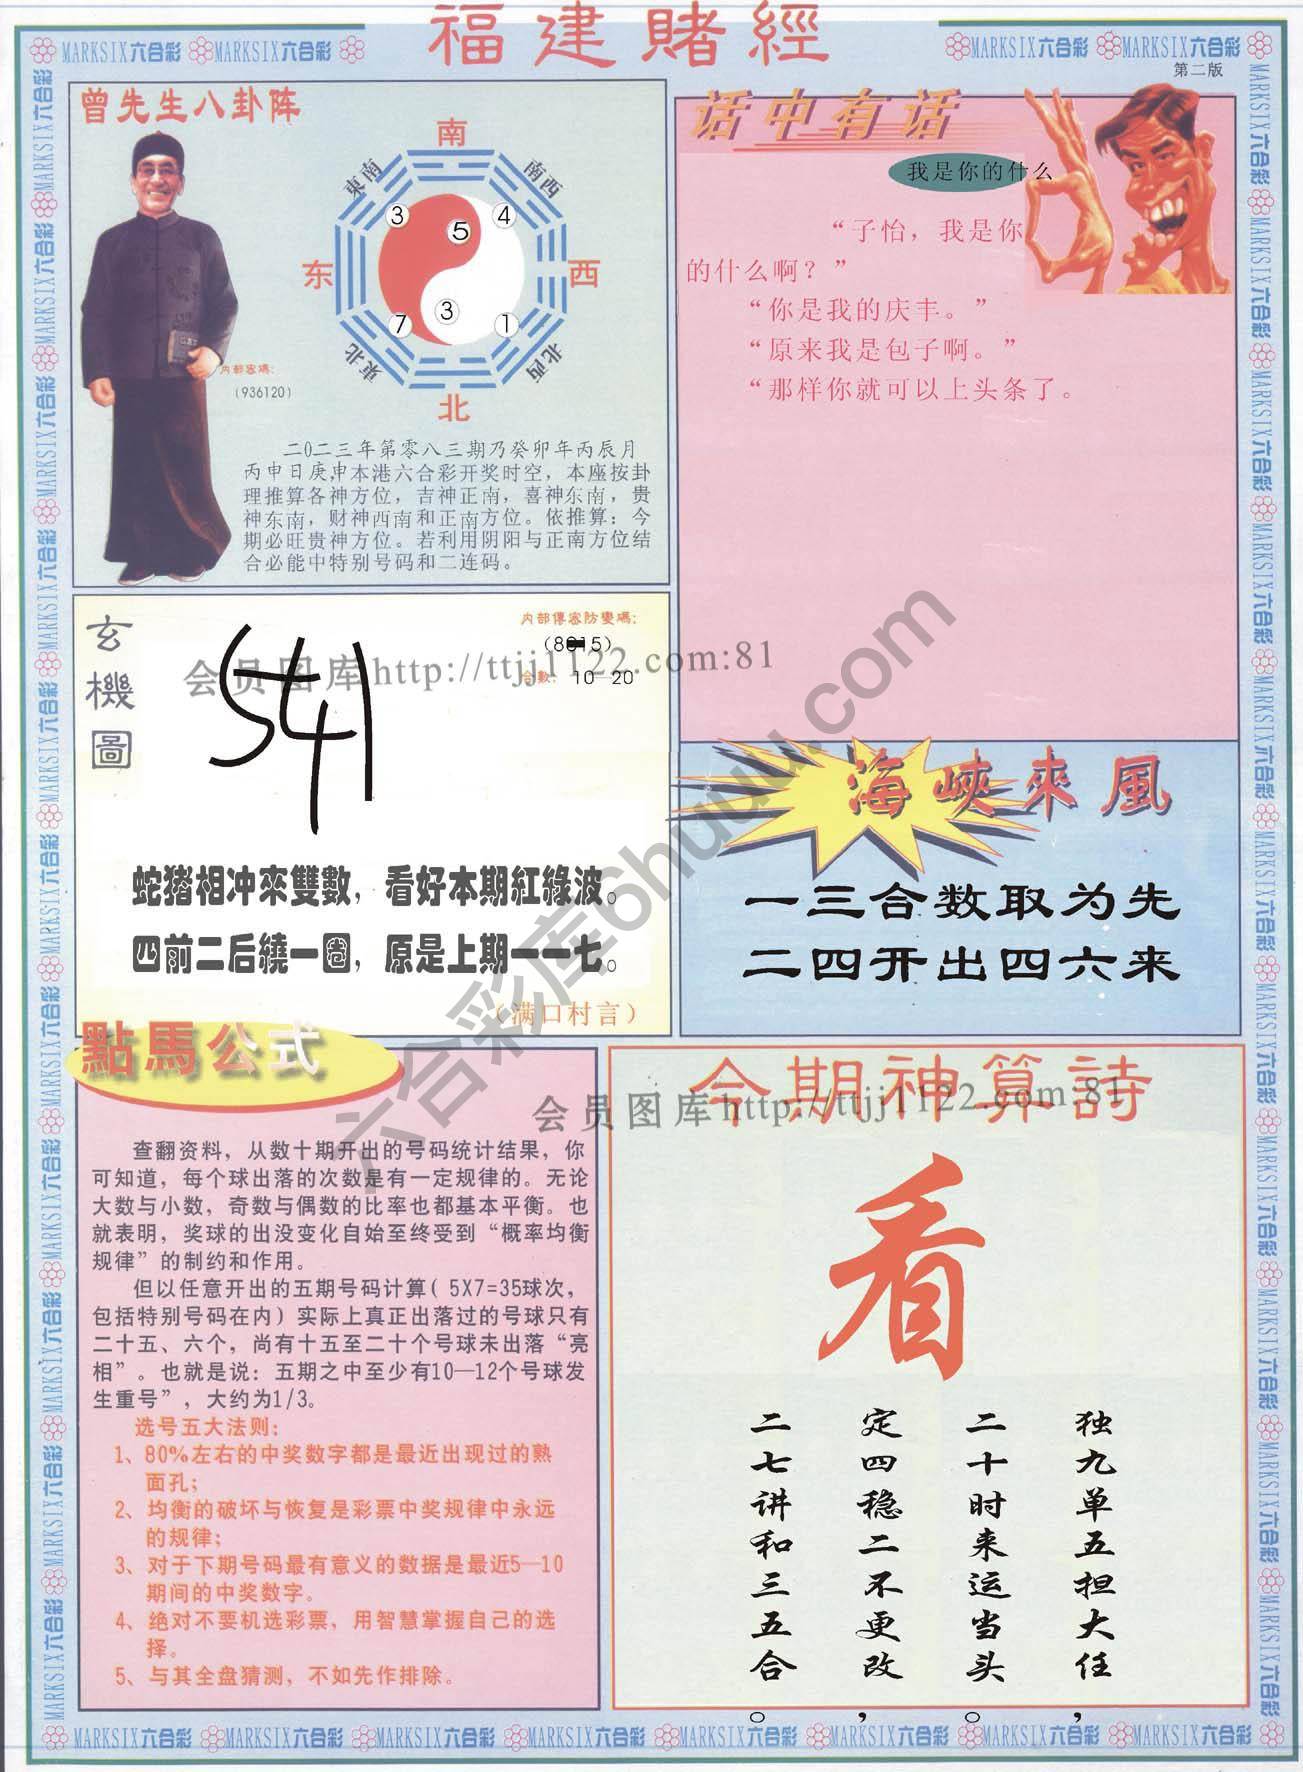 福建賭經
MARKSIX六合彩 MARKSIX六合彩
MARKSIX六合彩 MARKSIX六合彩
第二版
曾先生八卦阵
南
東南
南西
3
5
4
东
西
7
3
1
東北
北西
北
内部密碼：
(936120)
二0二三年第零八三期乃癸卯年丙辰月
丙申日庚申本港六合彩开奖时空，本座按卦
理推算各神方位，吉神正南，喜神东南，贵
神东南，财神西南和正南方位。依推算：今
期必旺贵神方位。若利用阴阳与正南方位结
合必能中特别号码和二连码。
话中有话
我是你的什么
“子怡，我是你
的什么啊？”
“你是我的庆丰。”
“原来我是包子啊。”
“那样你就可以上头条了。
玄機圖
内部傳密防變碼：
合數： 10—20
541
会员图库http://ttjj1122.com:81
蛇猪相冲來雙數，看好本期紅綠波。
四前二后繞一圈，原是上期一一七。
（满口村言）
海峽來風
一三合数取为先
二四开出四六来
六合彩库6huuu.com
點馬公式
查翻资料，从数十期开出的号码统计结果，你
可知道，每个球出落的次数是有一定规律的。无论
大数与小数，奇数与偶数的比率也都基本平衡。也
就表明，奖球的出没变化自始至终受到“概率均衡
规律”的制约和作用。
但以任意开出的五期号码计算( 5X7=35球次，
包括特别号码在内）实际上真正出落过的号球只有
二十五、六个，尚有十五至二十个号球未出落“亮
相”。也就是说：五期之中至少有10—12个号球发
生重号”，大约为1/3。
选号五大法则：
1、80%左右的中奖数字都是最近出现过的熟
面孔；
2、均衡的破坏与恢复是彩票中奖规律中永远
的规律；
3、对于下期号码最有意义的数据是最近5—10
期间的中奖数字。
4、绝对不要机选彩票，用智慧掌握自己的选
择。
5、与其全盘猜测，不如先作排除。
今期神算詩
会员图库http://ttjj1122.com:81
看
独九单五担大任，
二十时来运当头。
定四稳二不更改，
二七讲和三五合。
MARKSIX六合彩 MARKSIX六合彩 MARKSIX六合彩 MARKSIX六合彩 MARKSIX六合彩 MARKSIX六合彩 MARKSIX六合彩 MARKSIX六合彩